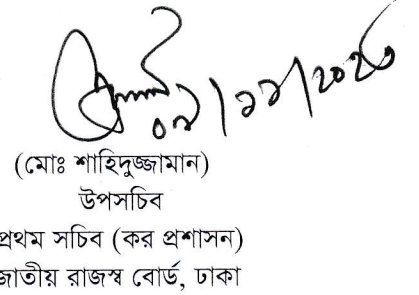 ০৯/১১/২০২৩
(মোঃ শাহিদুজ্জামান)
উপসচিব
প্রথম সচিব (কর প্রশাসন)
জাতীয় রাজস্ব বোর্ড, ঢাকা